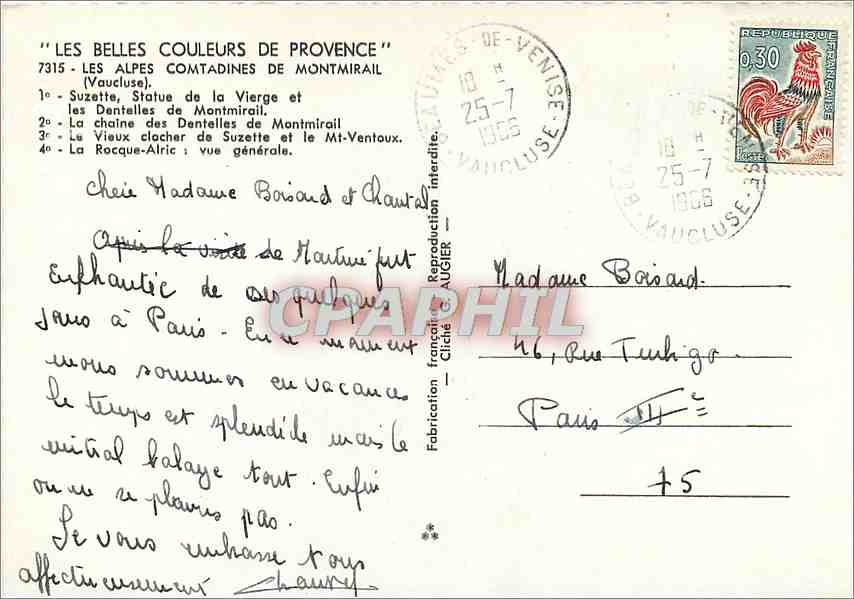 "LES BELLES COULEURS DE PROVENCE"
7315 - LES ALPES COMTADINES DE MONTMIRAIL
(Vaucluse).
1º - Suzette, Statue de la Vierge et
les Dentelles de Montmirail.
2º - La chaîne des Dentelles de Montmirail
3º - Le Vieux clocher de Suzette et le Mt-Ventoux.
4º - La Rocque-Alric : vue générale.
Chère Madame Boisard et Chantal
Après la visite de Martine fut
Enchantée de ses quelques
jours à Paris - En ce moment
nous sommes en vacances
le temps est splendide mais le
mistral balaye tout. Enfin
on ne se plains pas.
Je vous embrasse tous
affectueusement
Fabrication française - Reproduction interdite.
— Cliché G. AUGIER —
BEAUMES-DE-VENISE
18 H
25-7
1966
VAUCLUSE
BEAUMES-DE-VENISE
18 H
25-7
1966
VAUCLUSE
REPUBLIQUE FRANÇAISE
0,30
POSTES
Madame Boisard.
46, Rue Turbigo.
Paris III e
75
CPAPHIL